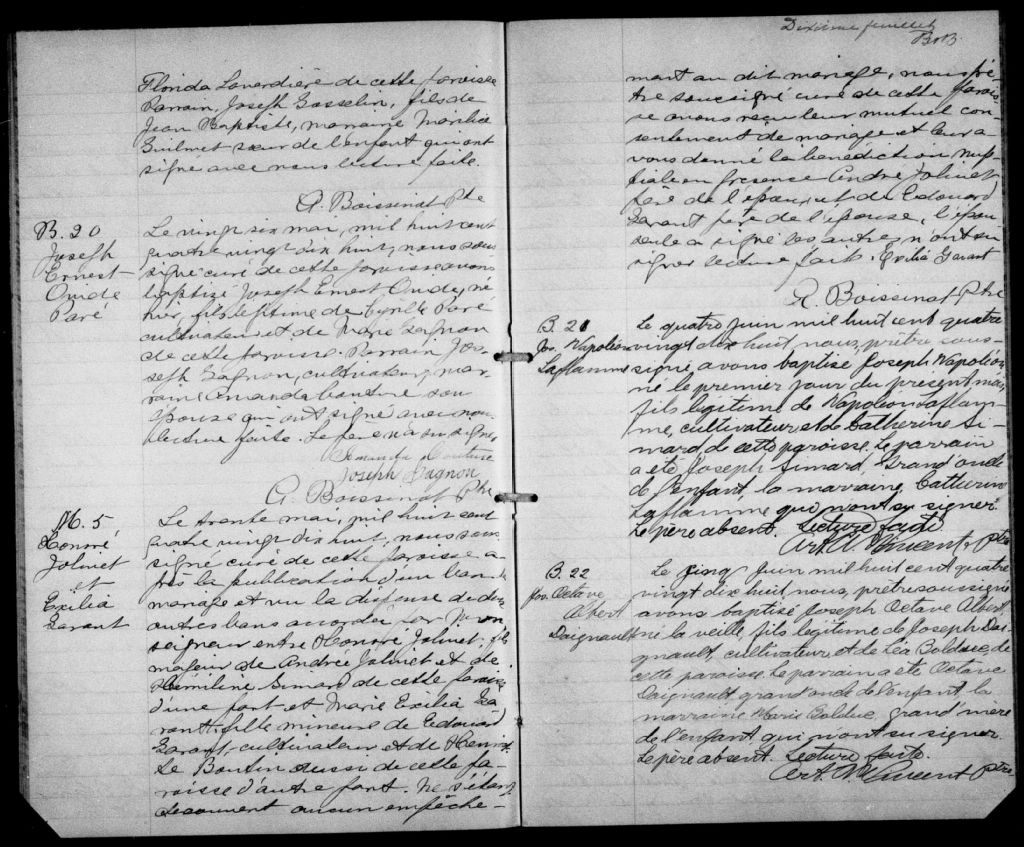 Florida Laverdière de cette paroisse
Parrain, Joseph Gosselin, fils de
Jean Baptiste, marraine Marilia
Guilmet sœur de l'enfant qui ont
signé avec nous lecture faite.
A. Boissinot Ptre
B. 20
Joseph
Ernest
Ovide
Paré
Le vingt six mai, mil huit cent
quatre vingt dix huit, nous sous
signé curé de cette paroisse avons
baptizé Joseph Ernest Ovide, né
hier, fils légitime de Cyrille Paré
cultivateur et de Marie Gagnon
de cette paroisse. Parrain Jos-
seph Gagnon, cultivateur, mar-
raine Amanda Couture son
épouse qui ont signé avec nous
lecture faite. Le père n'a su signer
Amanda Couture
Joseph Gagnon
A. Boissinot Ptre
M. 5
Honoré
Jolivet
et
Exilia
Garant
Le trente mai, mil huit cent
quatre vingt dix huit, nous sous
signé curé de cette paroisse, a-
près la publication d'un ban de
mariage et vu la dispense de deux
autres bans accordée par Mon
seigneur entre Honoré Jolivet, fils
majeur de André Jolivet et de
Herméline Simard de cette paroisse
d'une part et Marie Exilia Ga
rant, fille mineure de Edouard
Garant, cultivateur et de Henriet
te Boutin aussi de cette pa-
roisse d'autre part. Ne s'étant
découvert aucun empêche-
Dixième feuillet
B&B.
ment au dit mariage, nous prê-
tre soussigné curé de cette parois
se avons reçu leur mutuel con-
sentement de mariage et leur a-
vons donné la bénédiction nup-
tiale en présence André Jolivet
père de l'époux, et de Edouard
Garant père de l'épouse, l'épou
seule a signé les autres n'ont su
signer lecture fait. Exilia Garant
A. Boissinot Ptre
B. 21
Jos. Napoléon
Laflamme
Le quatre juin mil huit cent quatre
vingt dix huit nous, prêtre sous-
signé avons baptisé Joseph Napoléon
né le premier jour du présent mois,
fils légitime de Napoléon Laflam-
me, cultivateur et de Catherine Si-
mard, de cette paroisse. Le parrain
a été Joseph Simard, Grand' oncle
de l'enfant, la marraine, Catherine
Laflamme qui n'ont su signer.
Le père absent. Lecture faite
Art. A. Vincent, ptre
B. 22
Jos. Octave
Albert
Daignault
Le cinq Juin mil huit cent quatre
vingt dix huit nous, prêtre soussigné
avons baptisé Joseph Octave Albert,
né la veille, fils légitime de Joseph Dai-
gnault, cultivateur et de Léa Bolduc, de
cette paroisse. Le parrain a été Octave
Daignault grand oncle de l'enfant, la
marraine Marie Bolduc, grand' mère
de l'enfant, qui n'ont su signer.
Le père absent. Lecture faite.
Art. A. Vincent Ptre